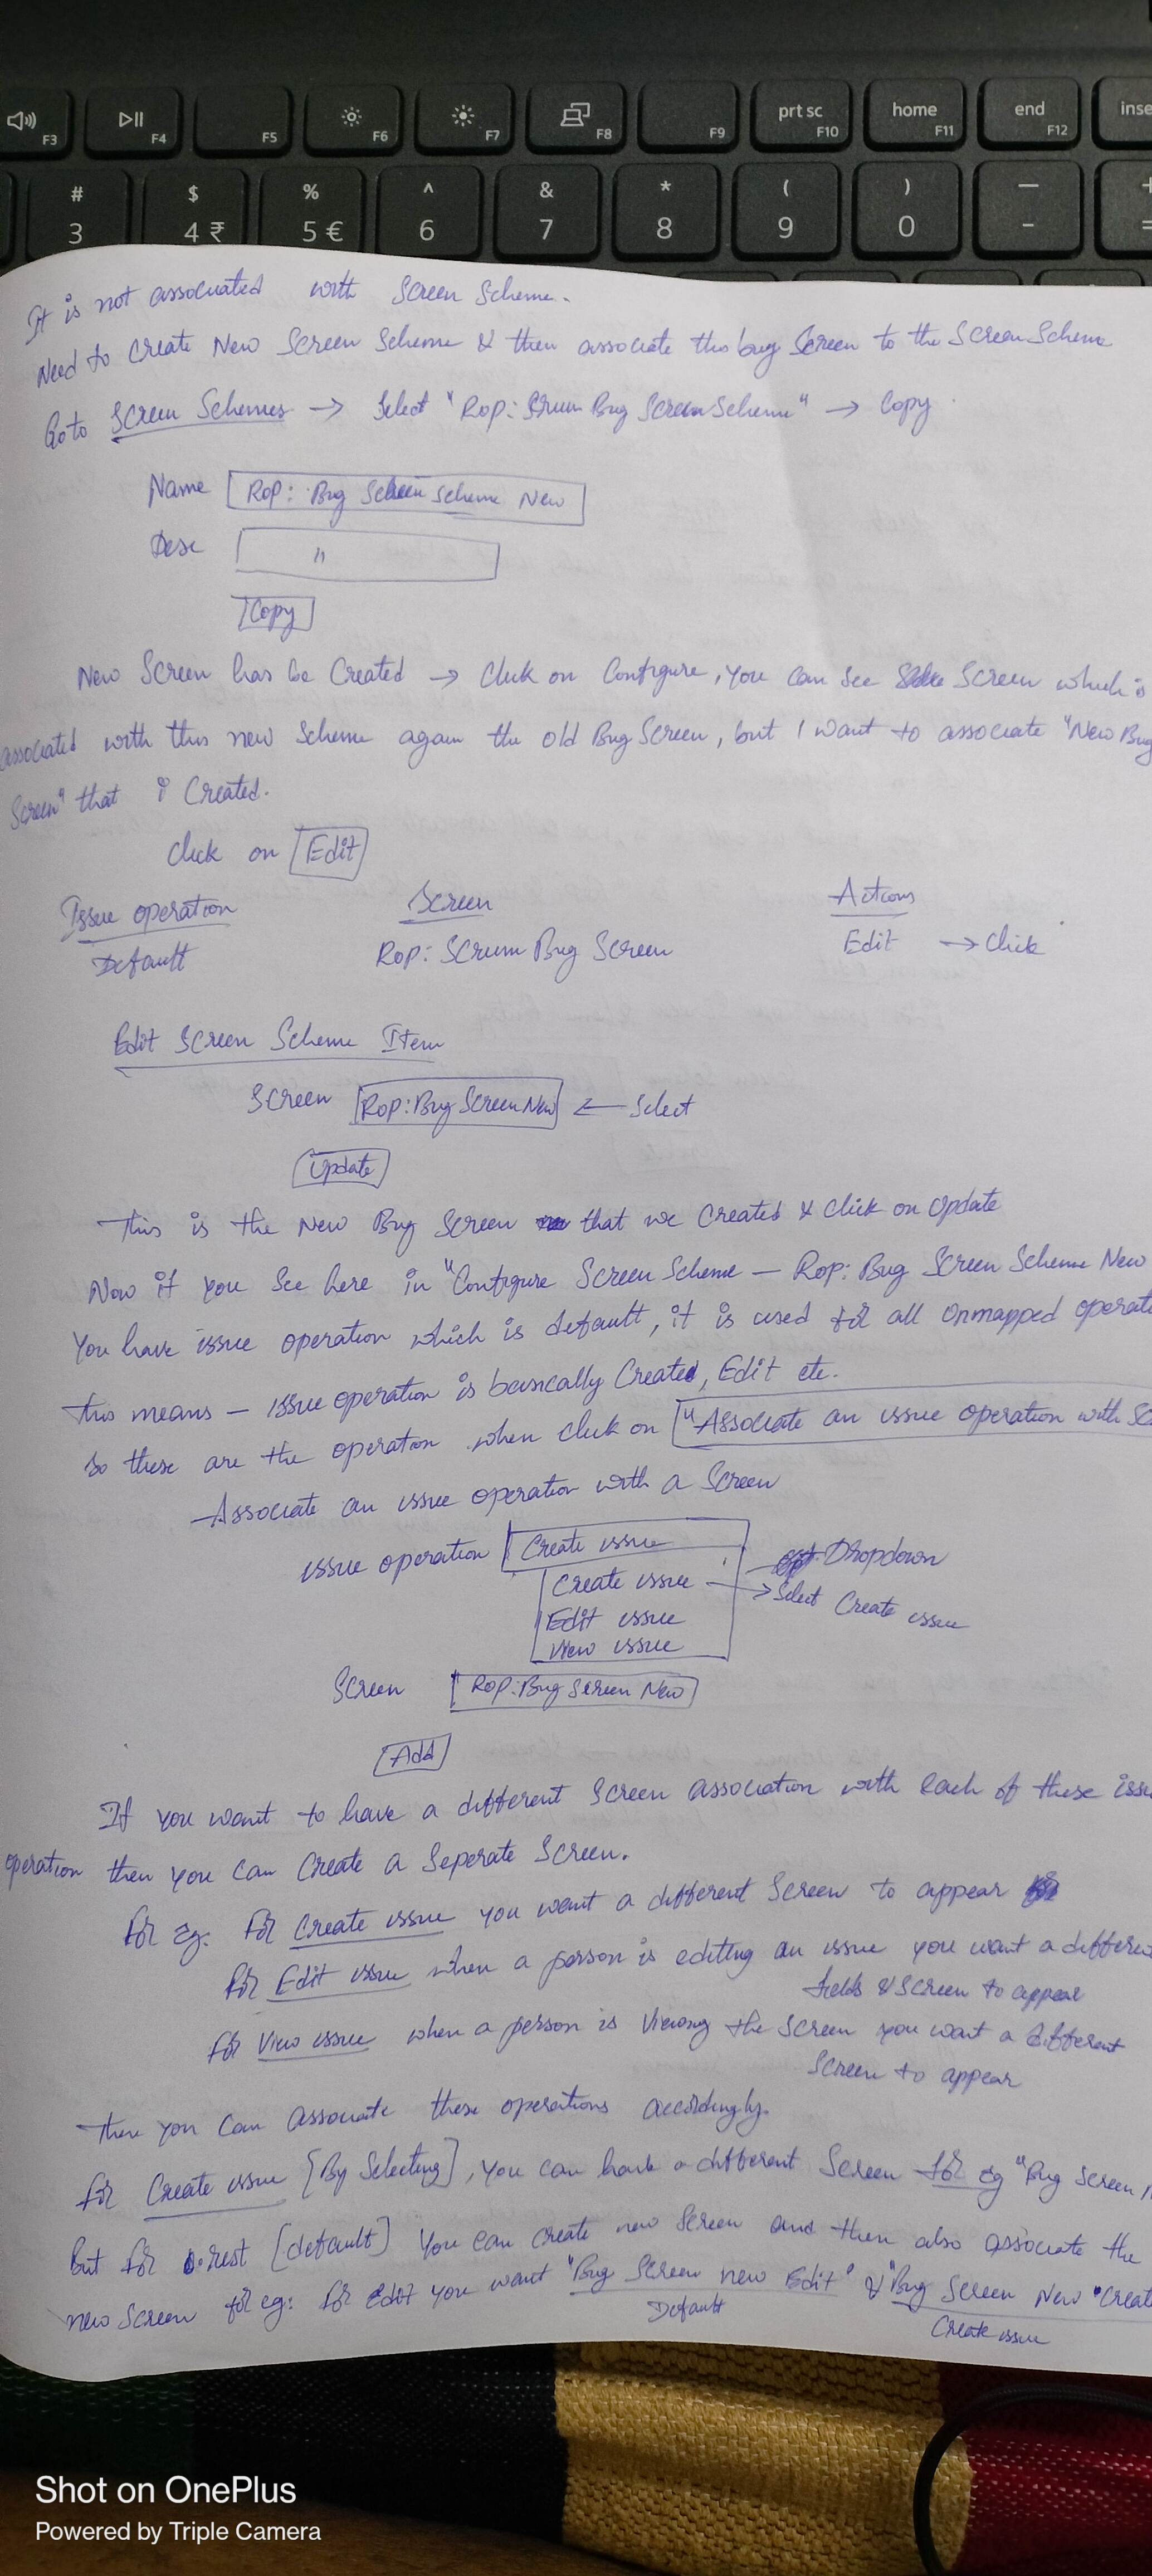 F3
F4
F5
F6
F7
F8
F9
prt sc F10
home F11
end F12
inse
# 3
$ 4 ₹
% 5 €
^ 6
& 7
* 8
( 9
) 0
— -
+ =
It is not associated with Screen Scheme.
Need to create New Screen Scheme & then associate this bug Screen to the Screen Scheme
Go to Screen Schemes → Select "Rop: Scrum Bug Screen Scheme" → Copy
Name Rop: Bug Screen Scheme New
Desc "
Copy
New Screen has be Created → Click on Configure, You can see Screen which is
associated with this new Scheme again the old Bug Screen, but I want to associate "New Bug
Screen" that i Created.
Click on Edit
Issue operation Screen Actions
Default Rop: Scrum Bug Screen Edit → Click
Edit Screen Scheme Item
Screen Rop: Bug Screen New ← Select
Update
This is the New Bug Screen that we Created & Click on Update
Now if you See here in "Configure Screen Scheme — Rop: Bug Screen Scheme New
You have issue operation which is default, it is used for all Unmapped operat
this means — issue operation is basically Created, Edit etc.
So these are the operation when click on "Associate an issue operation with Sc
Associate an issue operation with a Screen
issue operation Create issue
Dropdown
Create issue → Select Create issue
Edit issue
View issue
Screen Rop: Bug Screen New
Add
If you want to have a different Screen association with each of these issu
operation then you can Create a Seperate Screen.
for eg: for Create issue you want a different Screen to appear
for Edit issue when a person is editing an issue you want a differen
fields & Screen to appear
for View issue when a person is Viewing the Screen you want a different
Screen to appear
Then you can associate these operations accordingly.
for Create issue [By Selecting], you can have a different Screen for eg "Bug Screen N
But for rest [default] You can create new Screen and then also associate the
new Screen for eg: for Edit you want "Bug Screen new Edit" & "Bug Screen New "Creat
Default
Create issue
Shot on OnePlus
Powered by Triple Camera